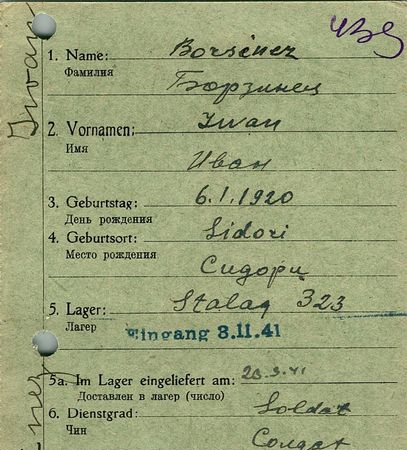 1. Name: Borsenez
Фамилия
Борзинец
2. Vornamen: Iwan
Имя
Иван
3. Geburtstag: 6.1.1920
День рождения
4. Geburtsort: Sidori
Место рождения
Сидори
5. Lager: Stalag 323
Лагерь
Eingang 8.11.41
5a. Im Lager eingeliefert am:
Доставлен в лагерь (число)
6. Dienstgrad: Soldat
Чин
Солдат
Iwan